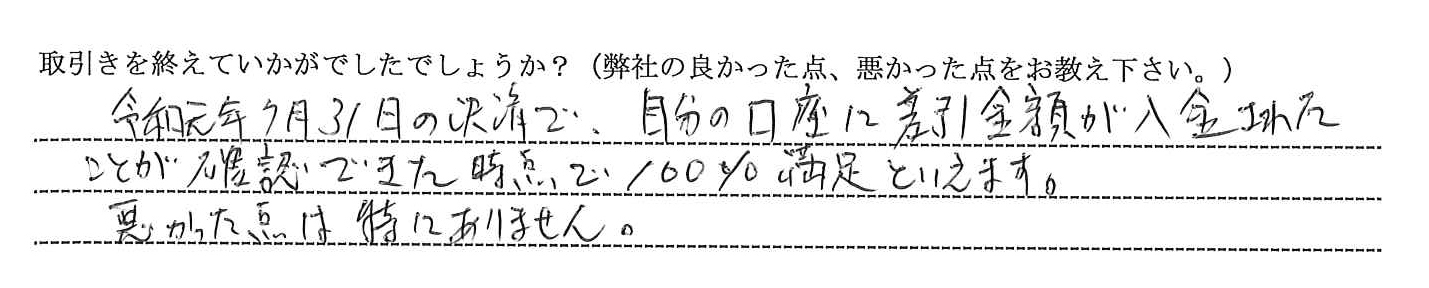 取引きを終えていかがでしたでしょうか？（弊社の良かった点、悪かった点をお教え下さい。）
令和元年7月31日の決済で、自分の口座に差引金額が入金された
ことが確認できた時点で100%満足といえます。
悪かった点は特にありません。